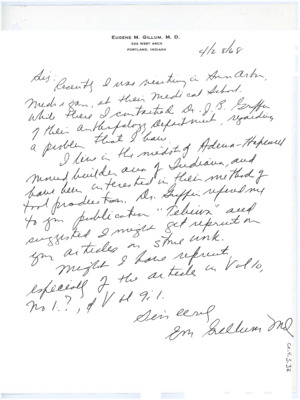 EUGENE M. GILLUM, M. D.
PORTLAND, INDIANA
4/28/68
Sir,
Recently I was visiting in Ann Arbor,
at their Medical School.
While there I contacted Dr. J. B. Griffin
of their Anthropology Department, regarding
a problem that I have
I live in the midst of Adena-Hopewell
Mound builder area of Indiana, and
have been interested in their method of
tool production. Dr. Griffin referred me
to your publication "Tebiwa" and
suggested I might get reprint on
your articles on stone work.
Might I have reprint,
especially of the article in Vol 10,
No 1?, & Vol 9:1.
Sincerely
Em Gillum MD